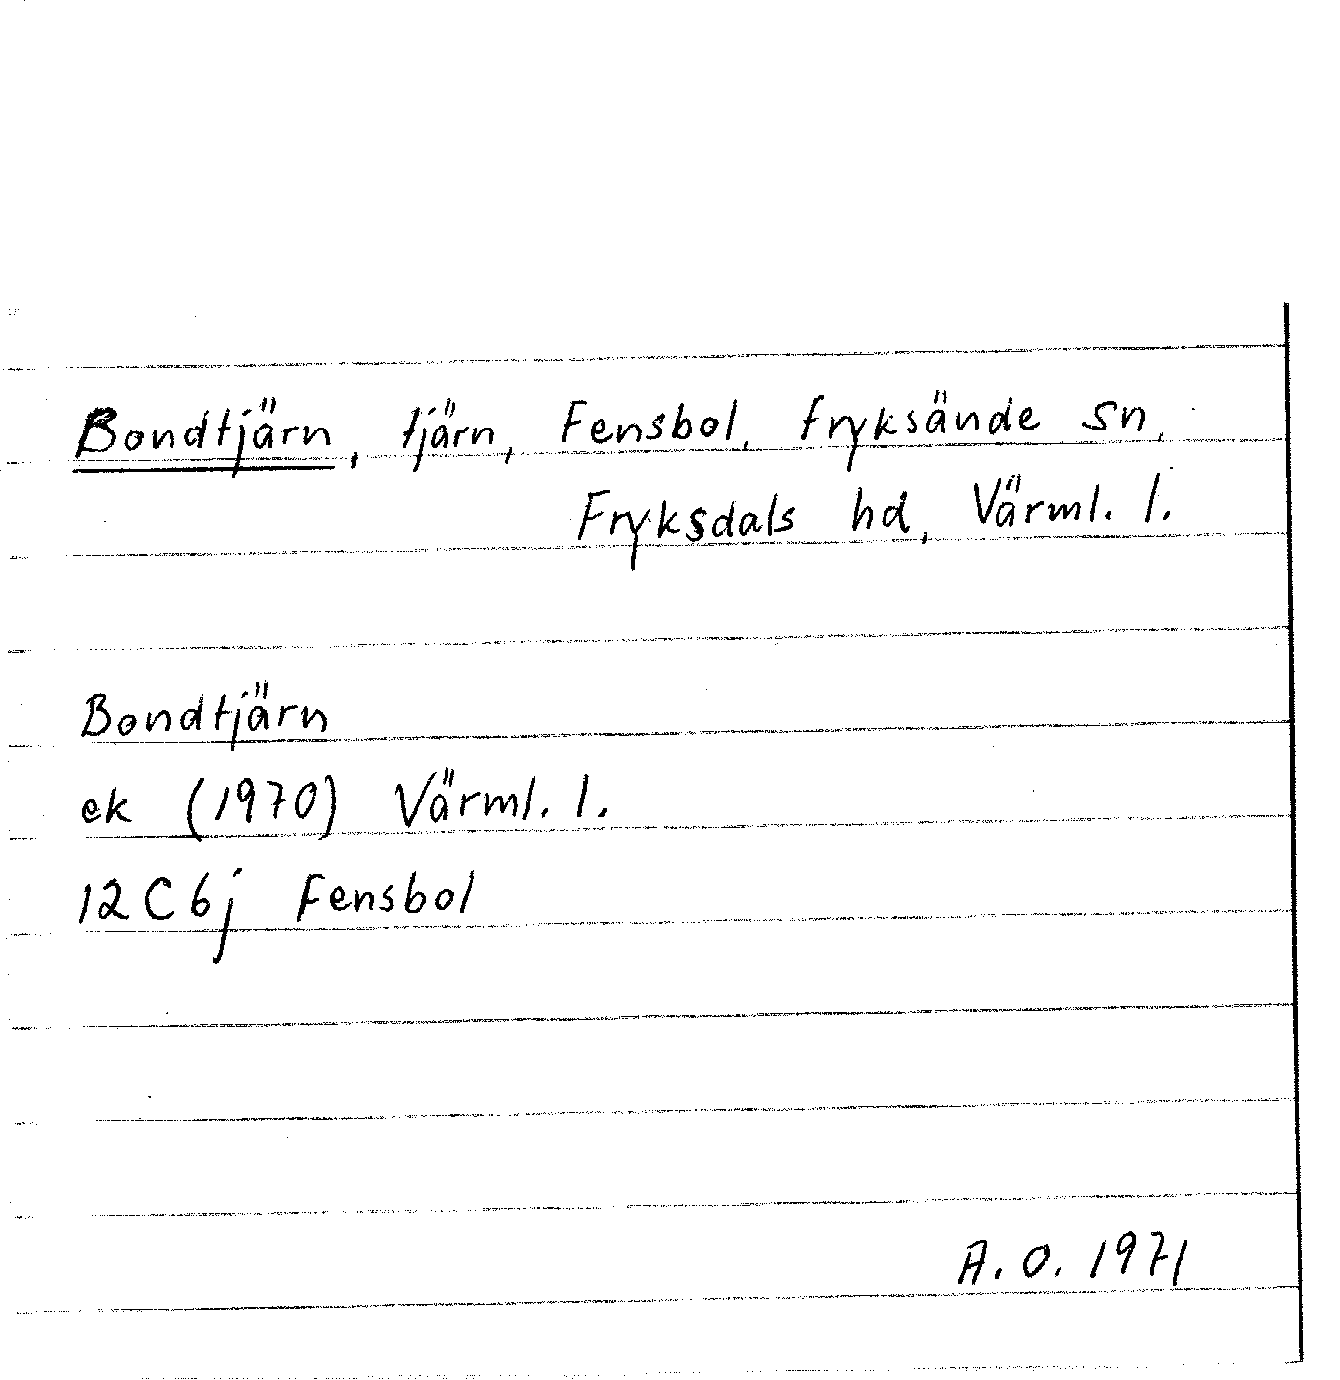 Bondtjärn, tjärn, Fensbol, Fryksände sn,
Fryksdals hd, Värml. l.
Bondtjärn
ek (1970) Värml. l.
12C 6j Fensbol
A. O. 1971